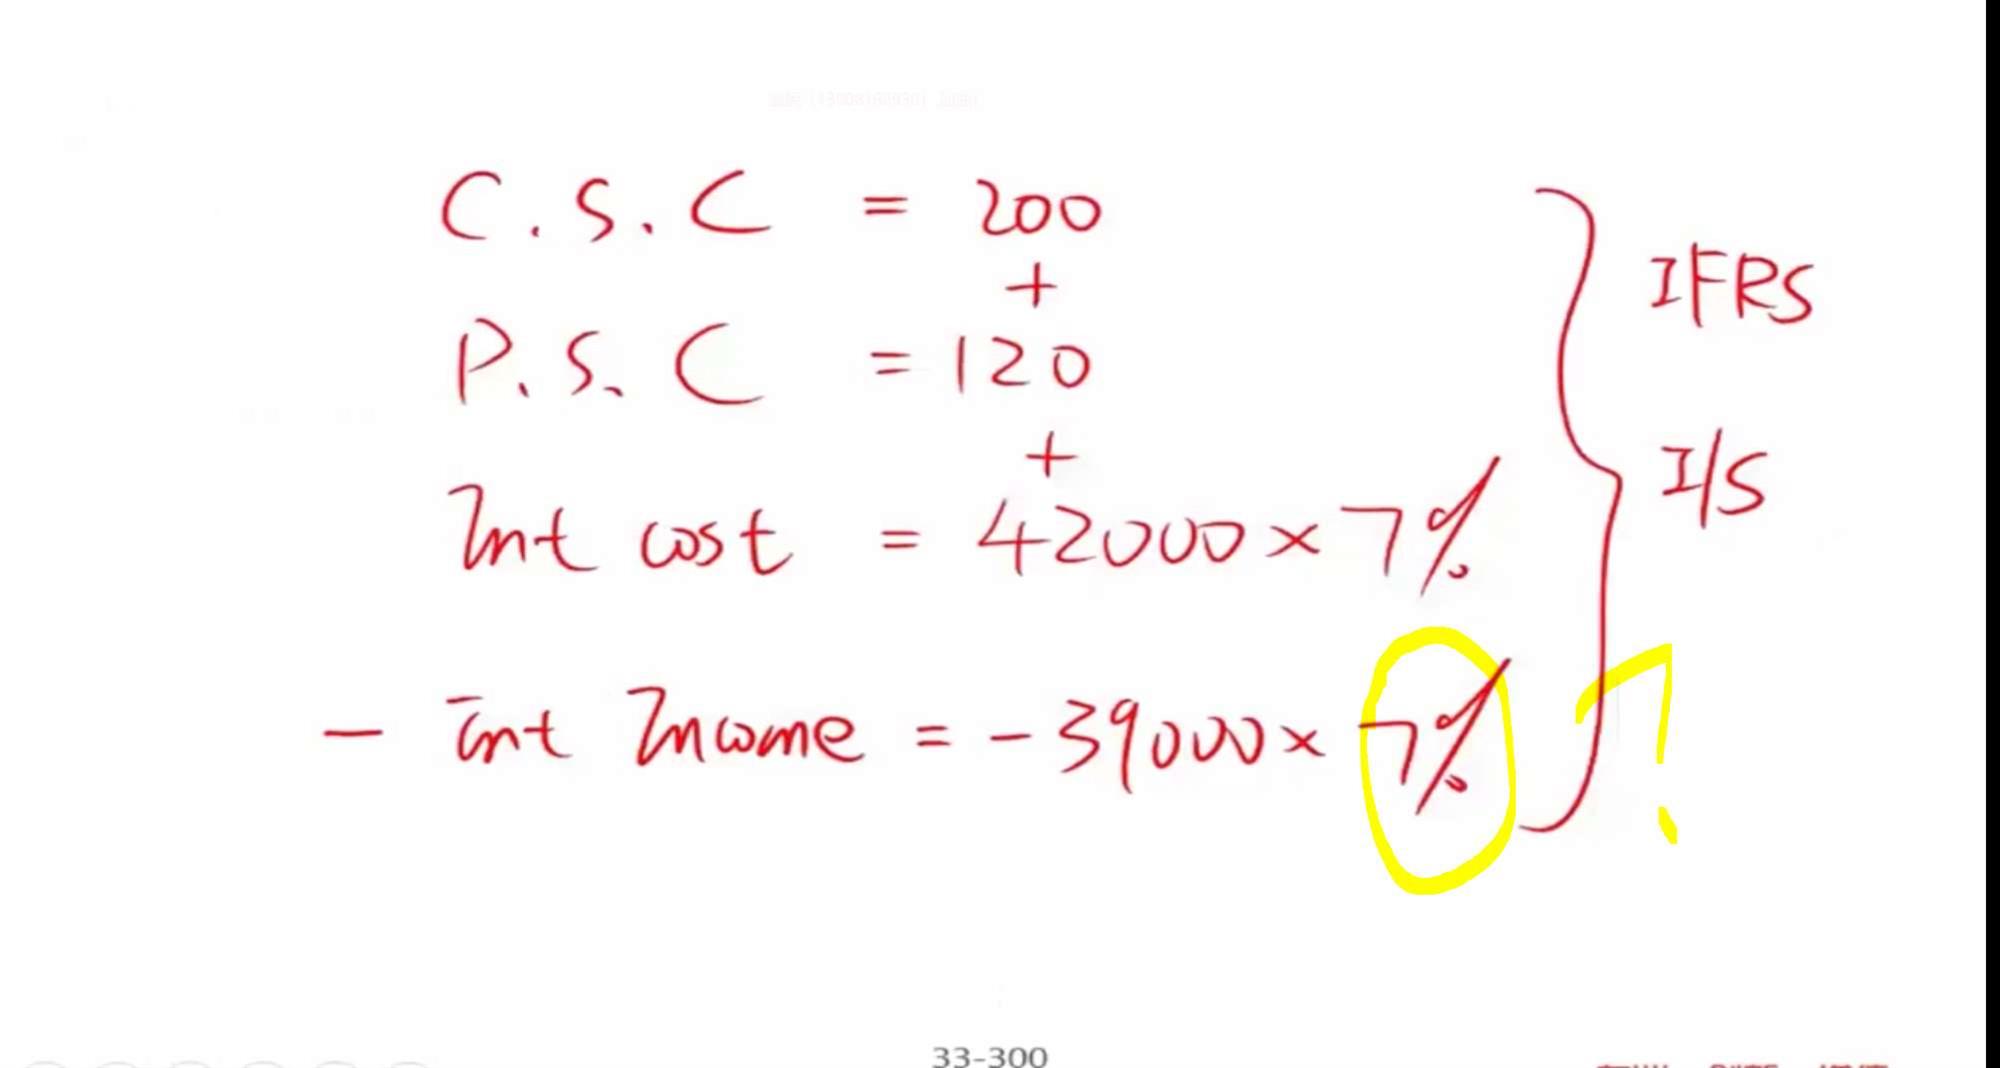 C.S.C = 200
+
P.S.C = 120
+
Int cost = 42000 × 7%
- Int Income = -39000 × 7%
IFRS
I/S
?
33-300